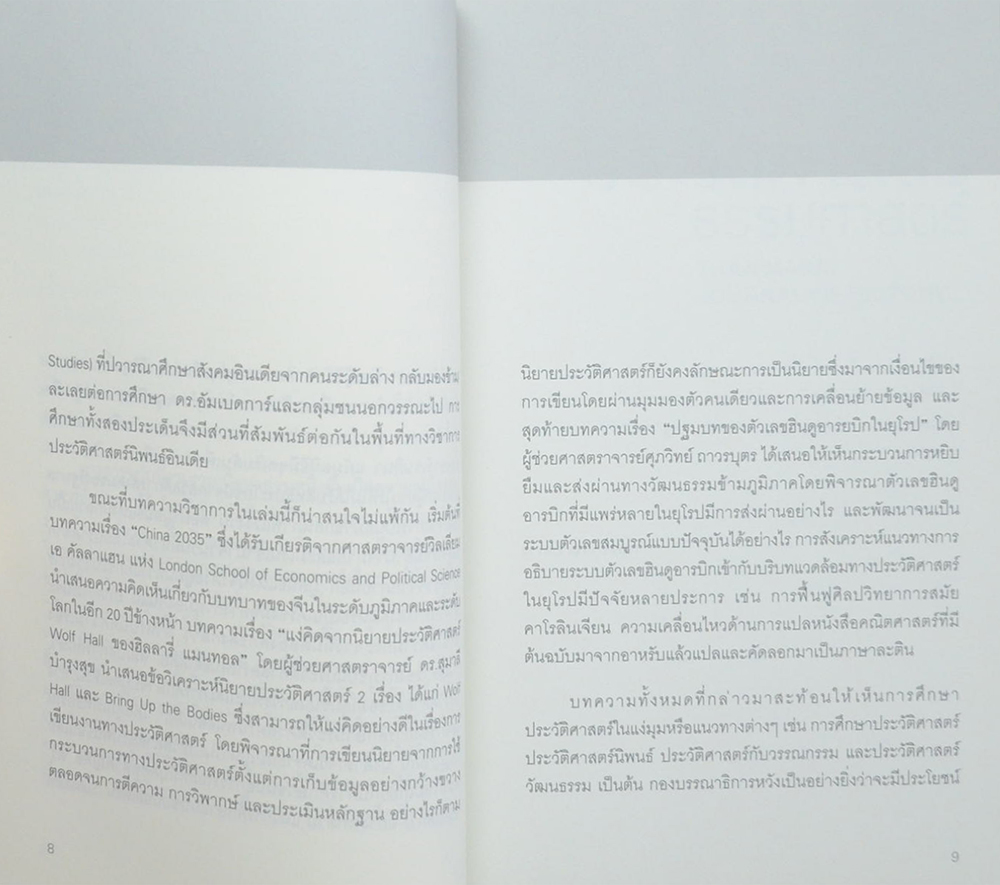 Studies) ที่ปวารณาศึกษาสังคมอินเดียจากคนระดับล่าง กลับมองข้าม
ละเลยต่อการศึกษา ดร.อัมเบดการ์และกลุ่มชนนอกวรรณะไป การ
ศึกษาทั้งสองประเด็นจึงมีส่วนที่สัมพันธ์ต่อกันในพื้นที่ทางวิชาการ
ประวัติศาสตร์นิพนธ์อินเดีย
ขณะที่บทความวิชาการในเล่มนี้ก็น่าสนใจไม่แพ้กัน เริ่มต้นที่
บทความเรื่อง “China 2035” ซึ่งได้รับเกียรติจากศาสตราจารย์วิลเลียม
เอ คัลลาแฮน แห่ง London School of Economics and Political Science
นำเสนอความคิดเห็นเกี่ยวกับบทบาทของจีนในระดับภูมิภาคและระดับ
โลกในอีก 20 ปีข้างหน้า บทความเรื่อง “แง่คิดจากนิยายประวัติศาสตร์
Wolf Hall ของฮิลลารี่ แมนทอล” โดยผู้ช่วยศาสตราจารย์ ดร.สุมาลี
บำรุงสุข นำเสนอข้อวิเคราะห์นิยายประวัติศาสตร์ 2 เรื่อง ได้แก่ Wolf
Hall และ Bring Up the Bodies ซึ่งสามารถให้แง่คิดอย่างดีในเรื่องการ
เขียนงานทางประวัติศาสตร์ โดยพิจารณาที่การเขียนนิยายจากการใช้
กระบวนการทางประวัติศาสตร์ตั้งแต่การเก็บข้อมูลอย่างกว้างขวาง
ตลอดจนการตีความ การวิพากษ์ และประเมินหลักฐาน อย่างไรก็ตาม
8
นิยายประวัติศาสตร์ก็ยังคงลักษณะการเป็นนิยายซึ่งมาจากเงื่อนไขของ
การเขียนโดยผ่านมุมมองตัวคนเดียวและการเคลื่อนย้ายข้อมูล และ
สุดท้ายบทความเรื่อง “ปฐมบทของตัวเลขฮินดูอารยบิกในยุโรป” โดย
ผู้ช่วยศาสตราจารย์ศุภวิทย์ ถาวรบุตร ได้เสนอให้เห็นกระบวนการหยิบ
ยืมและส่งผ่านทางวัฒนธรรมข้ามภูมิภาคโดยพิจารณาตัวเลขฮินดู
อารบิกที่มีแพร่หลายในยุโรปมีการส่งผ่านอย่างไร และพัฒนาจนเป็น
ระบบตัวเลขสมบูรณ์แบบปัจจุบันได้อย่างไร การสังเคราะห์แนวทางการ
อธิบายระบบตัวเลขฮินดูอารบิกเข้ากับบริบทแวดล้อมทางประวัติศาสตร์
ในยุโรปมีปัจจัยหลายประการ เช่น การฟื้นฟูศิลปวิทยาการสมัย
คาโรลินเจียน ความเคลื่อนไหวด้านการแปลหนังสือคณิตศาสตร์ที่มี
ต้นฉบับมาจากอาหรับแล้วแปลและคัดลอกมาเป็นภาษาละติน
บทความทั้งหมดที่กล่าวมาสะท้อนให้เห็นการศึกษา
ประวัติศาสตร์ในแง่มุมหรือแนวทางต่างๆ เช่น การศึกษาประวัติศาสตร์
ประวัติศาสตร์นิพนธ์ ประวัติศาสตร์กับวรรณกรรม และประวัติศาสตร์
วัฒนธรรม เป็นต้น กองบรรณาธิการหวังเป็นอย่างยิ่งว่าจะมีประโยชน์
9